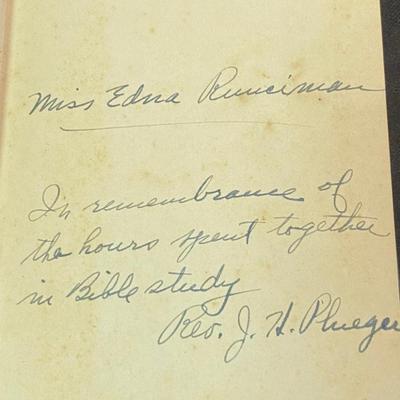 Miss Edna Runciman
In remembrance of
the hours spent together
in Bible study
Rev. J. H. Plueger